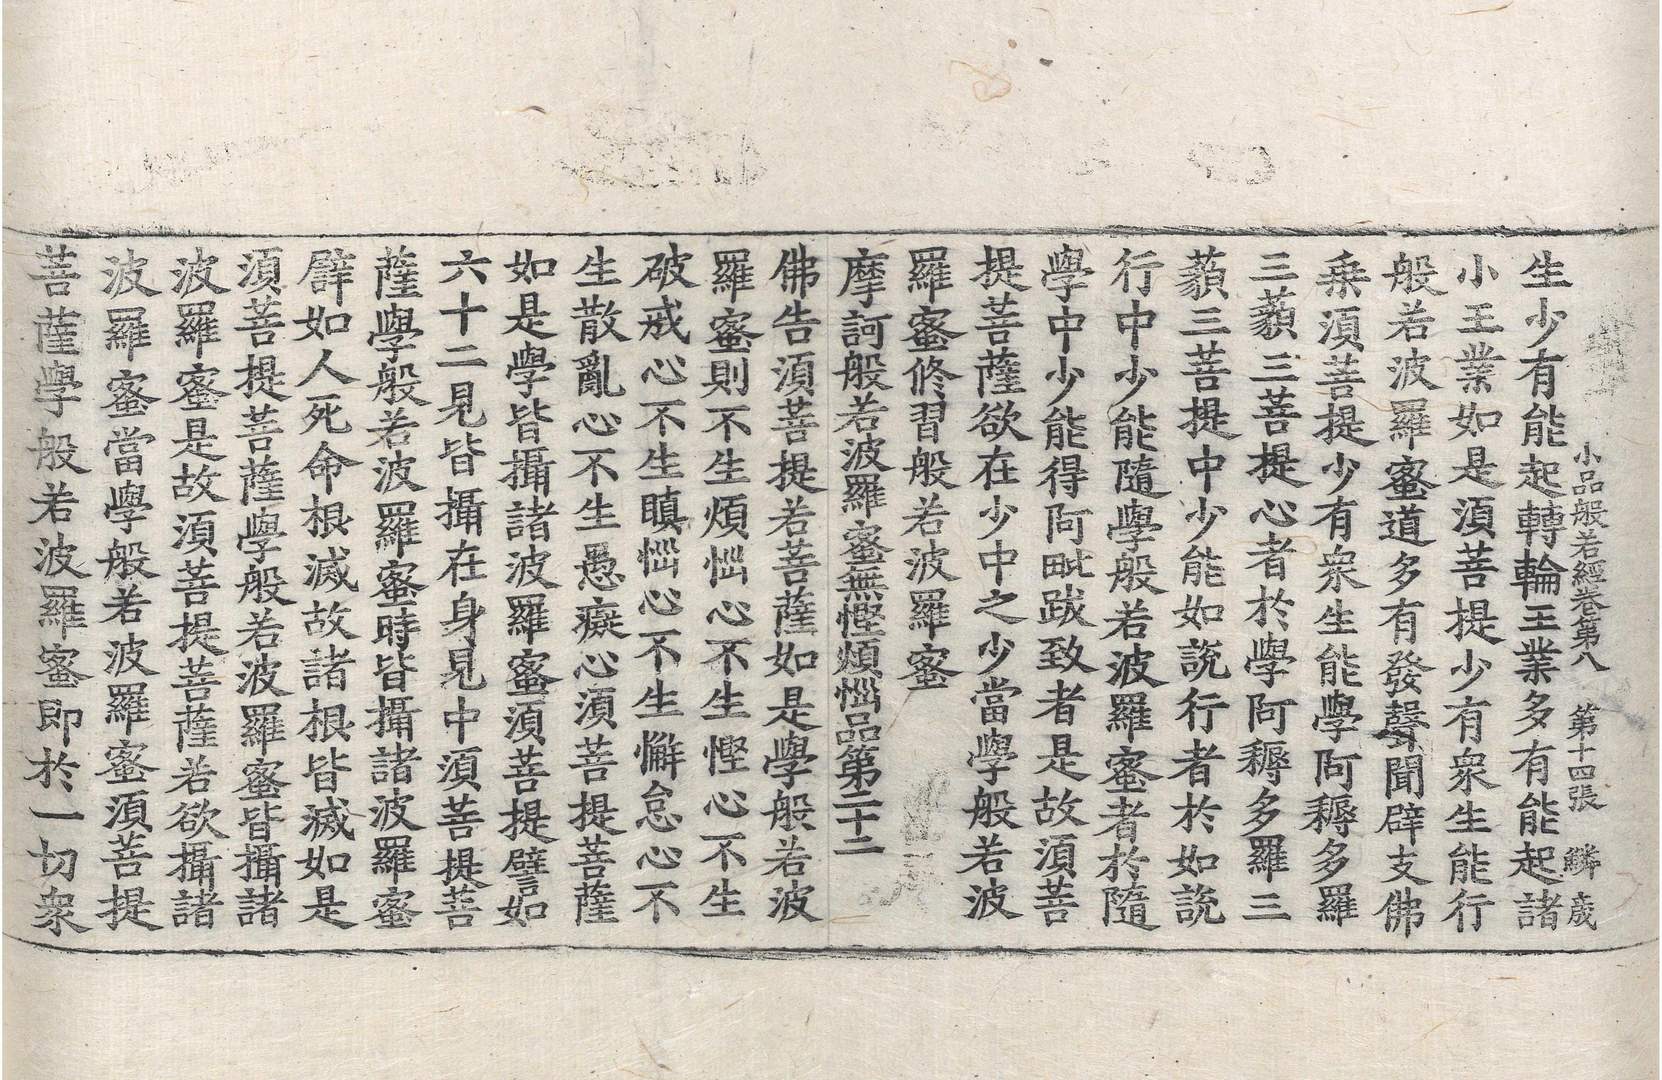 小品般若經卷第八　第十四張　鱗歲
生少有能起轉輪王業多有能起諸
小王業如是須菩提少有衆生能行
般若波羅蜜道多有發聲聞辟支佛
乗須菩提少有衆生能學阿耨多羅
三藐三菩提心者於學阿耨多羅三
藐三菩提中少能如說行者於如說
行中少能隨學般若波羅蜜者於隨
學中少能得阿毗跋致者是故須菩
提菩薩欲在少中之少當學般若波
羅蜜修習般若波羅蜜
摩訶般若波羅蜜無慳煩惱品第二十二
佛告須菩提若菩薩如是學般若波
羅蜜則不生煩惱心不生慳心不生
破戒心不生瞋惱心不生懈怠心不
生散亂心不生愚癡心須菩提菩薩
如是學皆攝諸波羅蜜須菩提譬如
六十二見皆攝在身見中須菩提菩
薩學般若波羅蜜時皆攝諸波羅蜜
譬如人死命根滅故諸根皆滅如是
須菩提菩薩學般若波羅蜜皆攝諸
波羅蜜是故須菩提菩薩若欲攝諸
波羅蜜當學般若波羅蜜須菩提
菩薩學般若波羅蜜即於一切衆